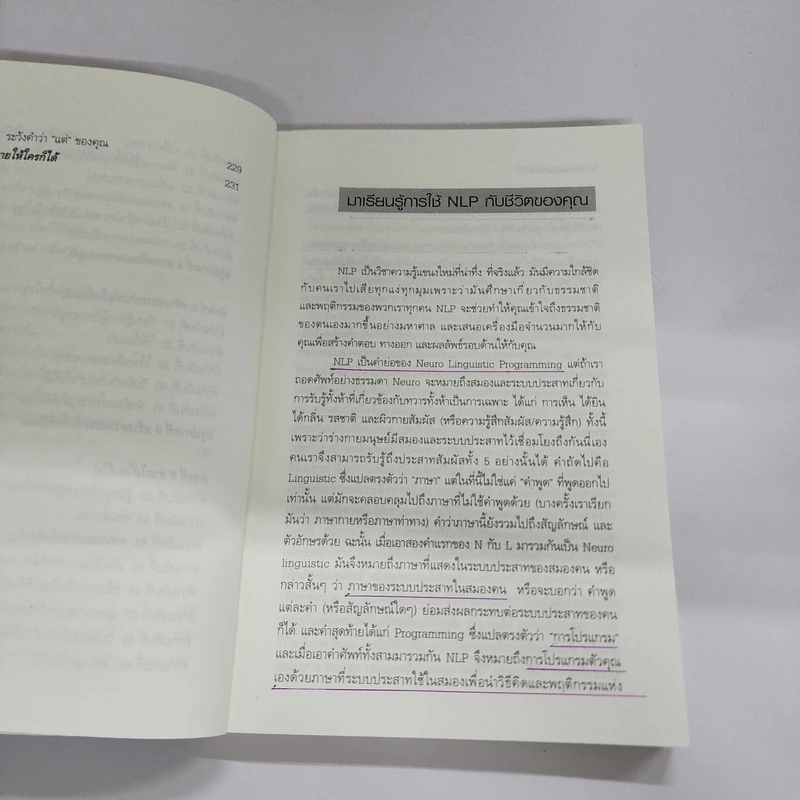 ระวังคำว่า "แต่" ของคุณ
229
ายให้ใครก็ได้
231
มาเรียนรู้การใช้ NLP กับชีวิตของคุณ
NLP เป็นวิชาความรู้แขนงใหม่ที่น่าทึ่ง ที่จริงแล้ว มันมีความใกล้ชิด
กับคนเราไปเสียทุกแง่ทุกมุมเพราะว่ามันศึกษาเกี่ยวกับธรรมชาติ
และพฤติกรรมของพวกเราทุกคน NLP จะช่วยทำให้คุณเข้าใจถึงธรรมชาติ
ของตนเองมากขึ้นอย่างมหาศาล และเสนอเครื่องมือจำนวนมากให้กับ
คุณเพื่อสร้างคำตอบ ทางออก และผลลัพธ์รอบด้านให้กับคุณ
NLP เป็นคำย่อของ Neuro Linguistic Programming แต่ถ้าเรา
ถอดศัพท์อย่างธรรมดา Neuro จะหมายถึงสมองและระบบประสาทเกี่ยวกับ
การรับรู้ทั้งห้าที่เกี่ยวข้องกับทวารทั้งห้าเป็นการเฉพาะ ได้แก่ การเห็น ได้ยิน
ได้กลิ่น รสชาติ และผิวกายสัมผัส (หรือความรู้สึกสัมผัส/ความรู้สึก) ทั้งนี้
เพราะว่าร่างกายมนุษย์มีสมองและระบบประสาทไว้เชื่อมโยงถึงกันนี่เอง
คนเราจึงสามารถรับรู้ถึงประสาทสัมผัสทั้ง 5 อย่างนั้นได้ คำถัดไปคือ
Linguistic ซึ่งแปลตรงตัวว่า "ภาษา" แต่ในที่นี้ไม่ใช่แค่ "คำพูด" ที่พูดออกไป
เท่านั้น แต่มักจะคลอบคลุมไปถึงภาษาที่ไม่ใช้คำพูดด้วย (บางครั้งเราเรียก
มันว่า ภาษากายหรือภาษาท่าทาง) คำว่าภาษานี้ยังรวมไปถึงสัญลักษณ์ และ
ตัวอักษรด้วย ฉะนั้น เมื่อเอาสองคำแรกของ N กับ L มารวมกันเป็น Neuro
linguistic มันจึงหมายถึงภาษาที่แสดงในระบบประสาทของสมองคน หรือ
กล่าวสั้นๆ ว่า ภาษาของระบบประสาทในสมองคน หรือจะบอกว่า คำพูด
แต่ละคำ (หรือสัญลักษณ์ใดๆ) ย่อมส่งผลกระทบต่อระบบประสาทของคน
ก็ได้ และคำสุดท้ายได้แก่ Programming ซึ่งแปลตรงตัวว่า "การโปรแกรม"
และเมื่อเอาคำศัพท์ทั้งสามมารวมกัน NLP จึงหมายถึงการโปรแกรมตัวคุณ
เองด้วยภาษาที่ระบบประสาทใช้ในสมองเพื่อนำวิธีคิดและพฤติกรรมแห่ง